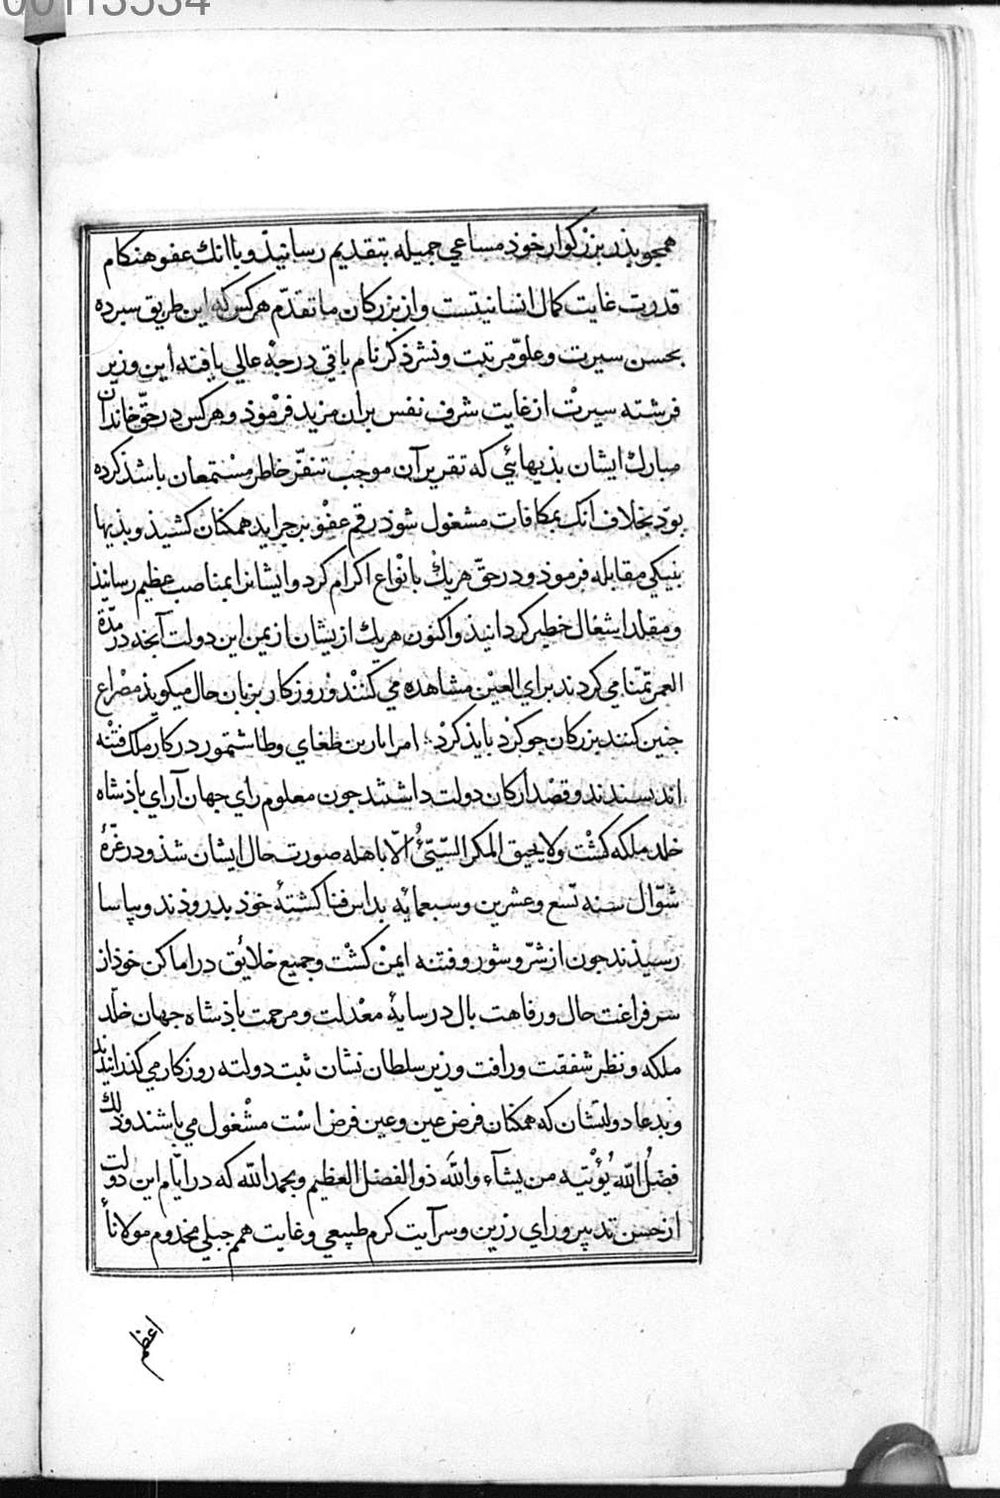 00113534
همجو بذر بزرکوار خوذ مساعي جميله بتقديم رسانيذ و باانك عفو هنکام
قدرت غايت کمال انسانيتست و از بزرکان ما تقدّم هرکس که اين طريق سبرده
بحسن سيرت و علوّ مرتبت و نشر ذکر نام باقي درجهٔ عالي يافته اين وزير
فرشته سيرت از غايت شرف نفس بران مزيد فرموذ و هرکس در حقّ خاندان
مبارك ايشان بذيهايي که تقرير آن موجب تنفّر خاطر مستمعان باشذ کرده
بوذ بخلاف انك بمکافات مشغول شوذ رقم عفو بر جرايد همکنان کشيذ و بذيها
بنيکي مقابله فرموذ و در حقّ هريك بانواع اکرام کرد و ايشانرا بمناصب عظيم رسانيذ
و مقلد اشغال خطير کردانيذ و اکنون هريك از يشان از يمن اين دولت آنجه در مدّة
العمر تمنّا مي کردند براي العين مشاهده مي کنند و روزکار بزبان حال ميکويذ مصراع
جنين کنند بزرکان جو کرد بايذ کرد ؛ امرا نارين طغاي و طاشتمور در کار ملك فتنه
انديسيدند و قصد ارکان دولت داشتند جون معلوم راي جهان آراي باذشاه
خلد ملکه کشت ولا يحيق المکر السّيّئُ الّا باهله صورت حال ايشان شذ و در غرّهٔ
شوّال سنه تسع و عشرين و سبعمايه بداس فنا کشتهٔ خوذ بدروذند و بياسا
رسيذند جون از شرّ و شور و فتنه ايمن کشت و جميع خلائق در اماکن خوذ از
سر فراغت حال و رفاهت بال در سايهٔ معدلت و مرحمت باذشاه جهان خلّد
ملکه و نظر شفقت و رافت وزير سلطان نشان ثبت دولته روزکار مي کذرانيدند
و بدعا دولتشان که همکنان فرض عين و عين فرض است مشغول مي باشند و ذلك
فضلُ اللّه يُؤتيه من يشآء واللّه ذوالفضل العظيم و بحمد اللّه که در ايّام اين دولت
از حسن تدبير و راي رزين و سرآيت کرم طبيعي و غايت همم جبلي مخدوم مولانا
اعظم